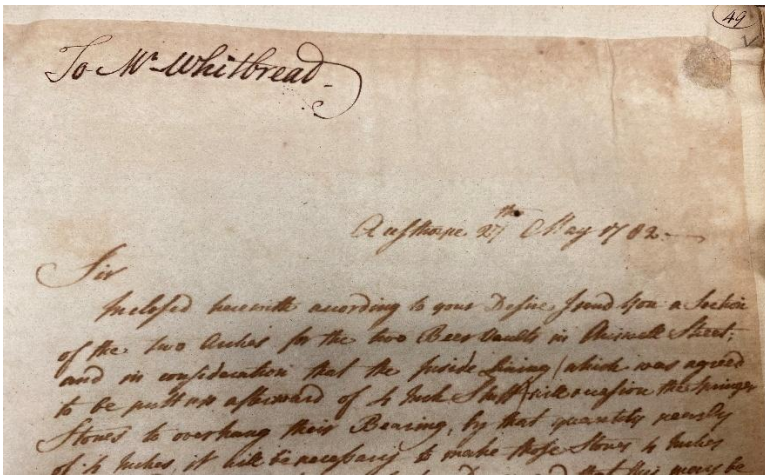 49
To Mr. Whitbread
Austhorpe 27th May 1782
Sir
Inclosed herewith according to your Desire, I send you a Section
of the two Arches for the two Beer Vaults in Chiswell Street;
and in consideration that the Inside Lining (which was agreed
to be put up afterward of 4 Inch Stuff) will occasion the Springer
Stones to overhang their Bearing, by that quantity namely
of 4 Inches, it will be necessary to make those Stones 4 Inches
that this must be